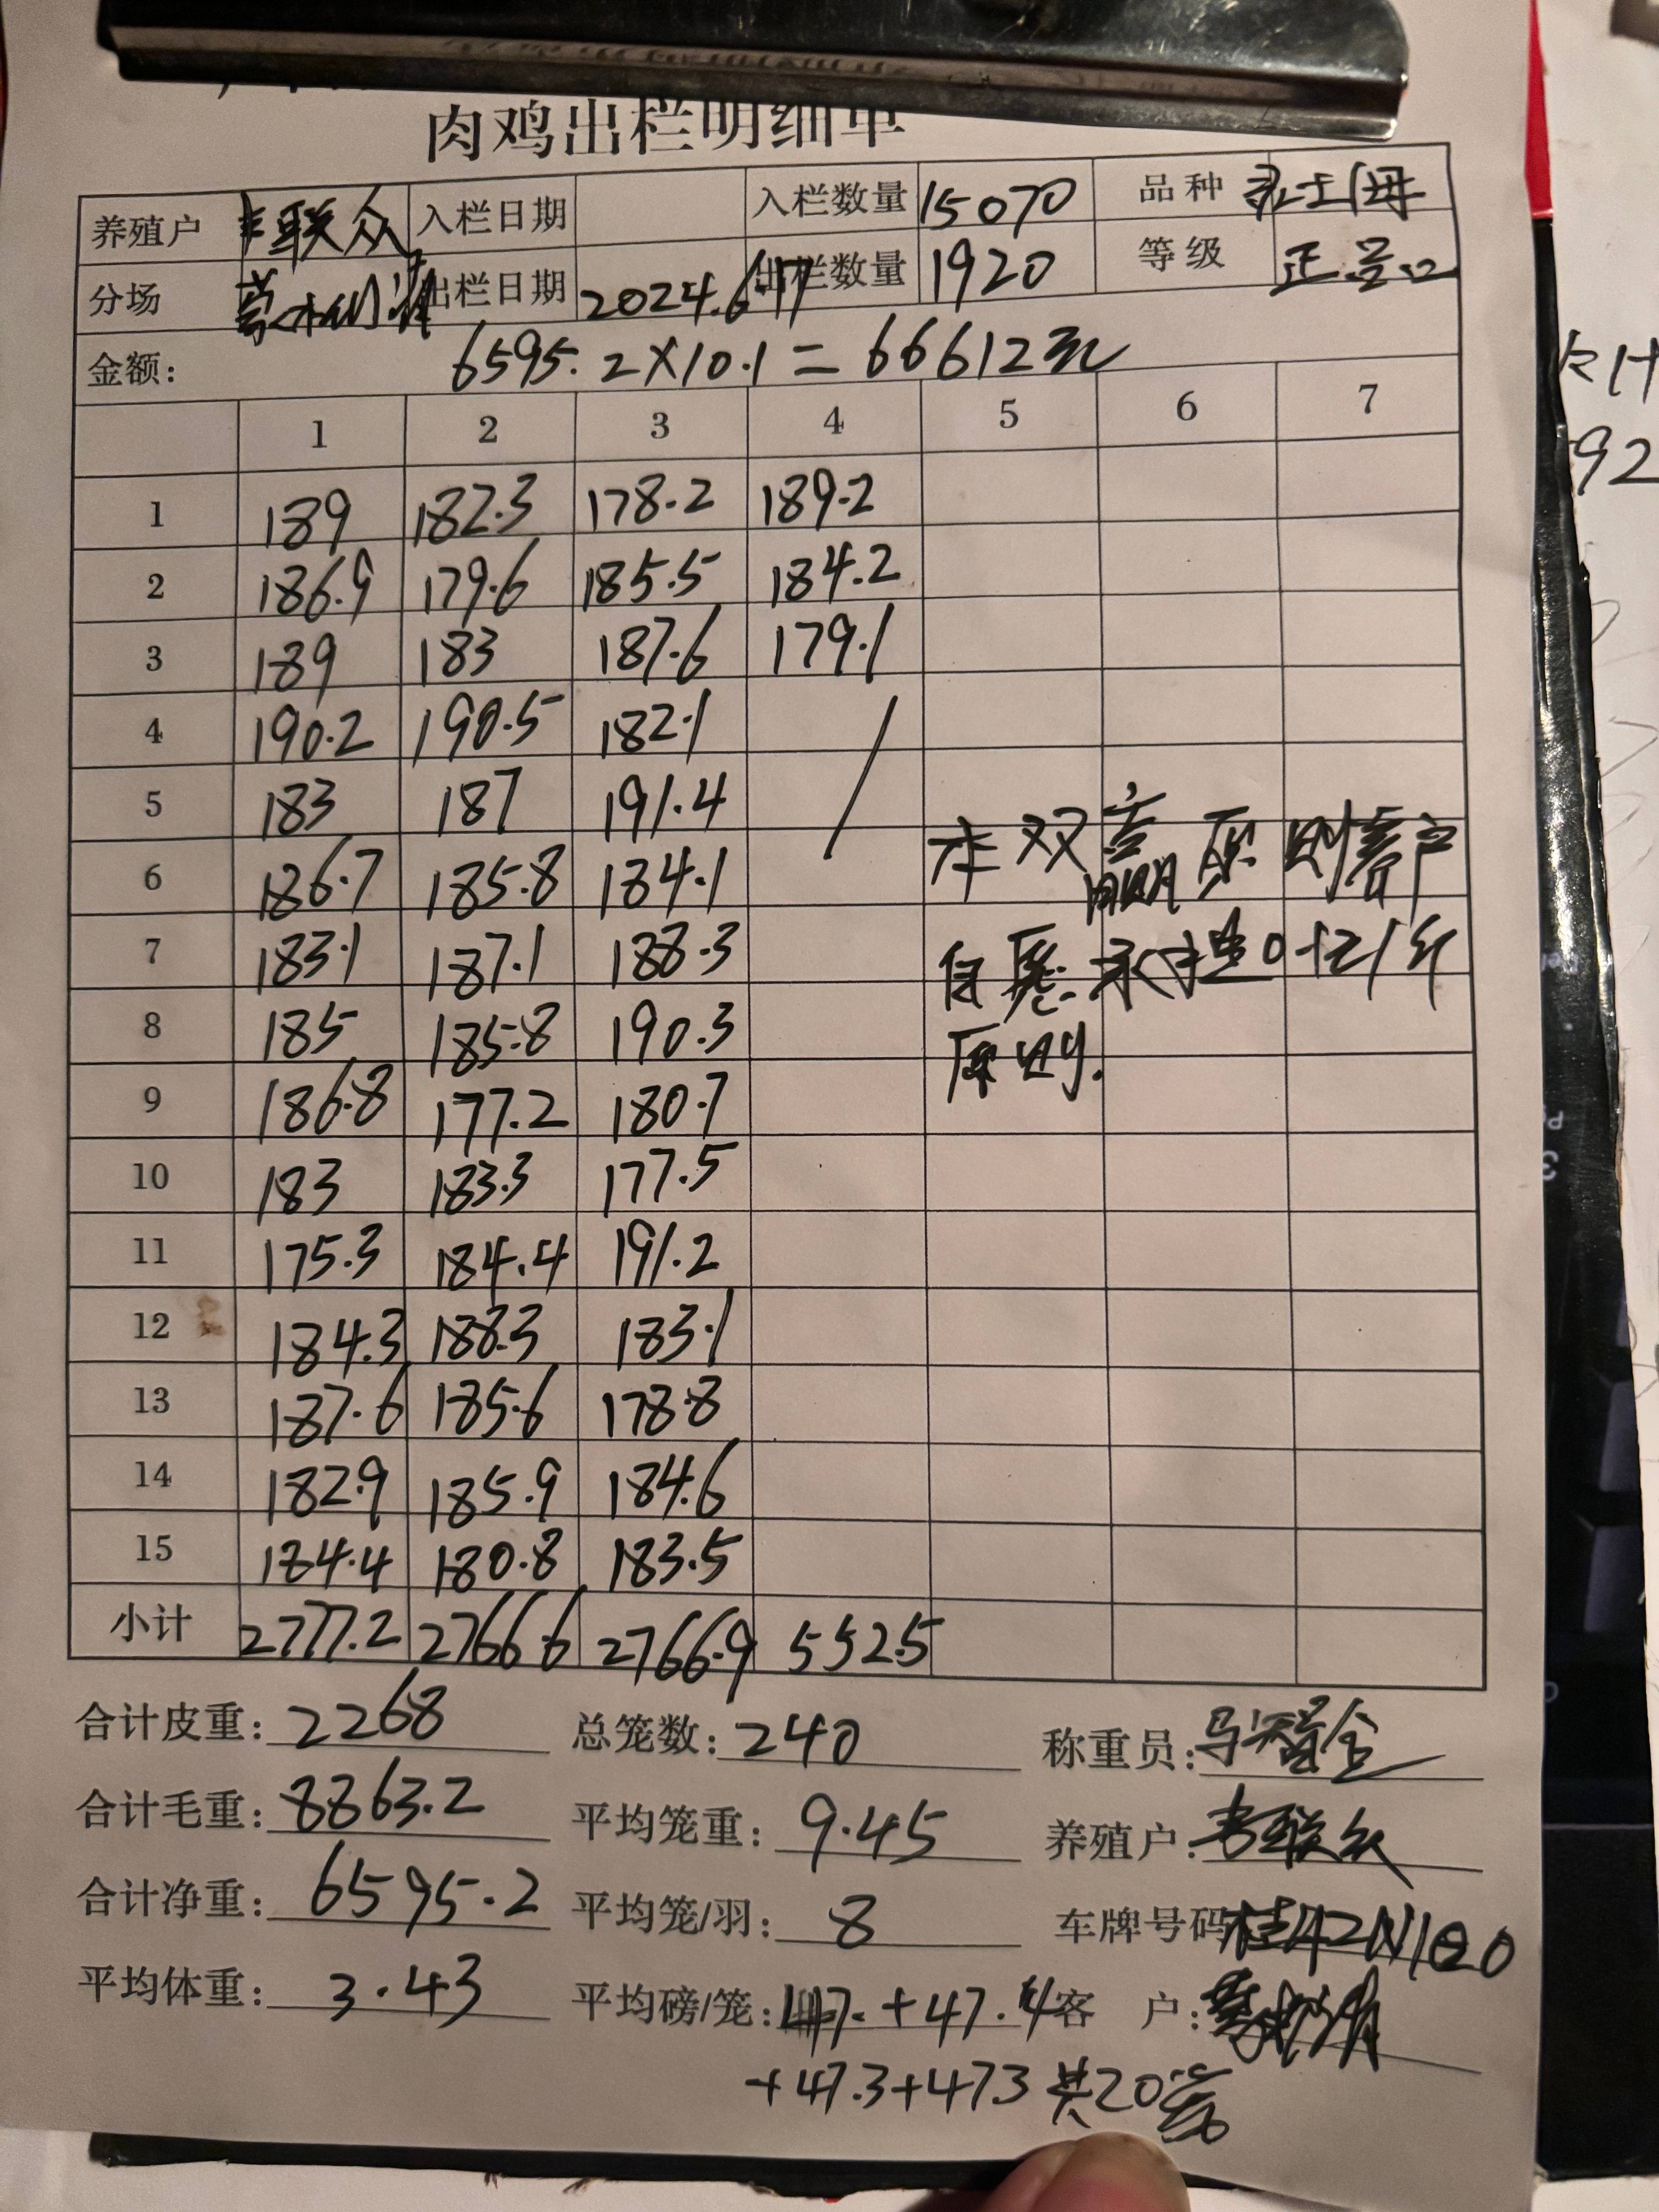 肉鸡出栏明细单
养殖户 联众 入栏日期 入栏数量 15070 品种 土母
分场 出栏日期 2024.6.17 出栏数量 1920 等级 正号
金额: 6595.2×10.1=66612元
1 2 3 4 5 6 7
1 189 182.3 178.2 189.2
2 186.9 179.6 185.5 184.2
3 189 183 187.6 179.1
4 190.2 190.5 182.1
5 183 187 191.4
6 186.7 185.8 184.1
7 183.1 187.1 188.3
8 185 185.8 190.3
9 186.8 177.2 180.7
10 183 183.3 177.5
11 175.3 184.4 191.2
12 184.3 188.3 183.1
13 187.6 185.6 178.8
14 182.9 185.9 184.6
15 184.4 180.8 183.5
本双赢原则客户
自愿承担
原则.
小计 2777.2 2766.6 2766.9 552.5
合计皮重: 2268 总笼数: 240 称重员: 马
合计毛重: 8863.2 平均笼重: 9.45 养殖户: 联众
合计净重: 6595.2 平均笼/羽: 8 车牌号码
平均体重: 3.43 平均磅/笼: 47.+47.4 客 户:
+47.3+47.3 共20